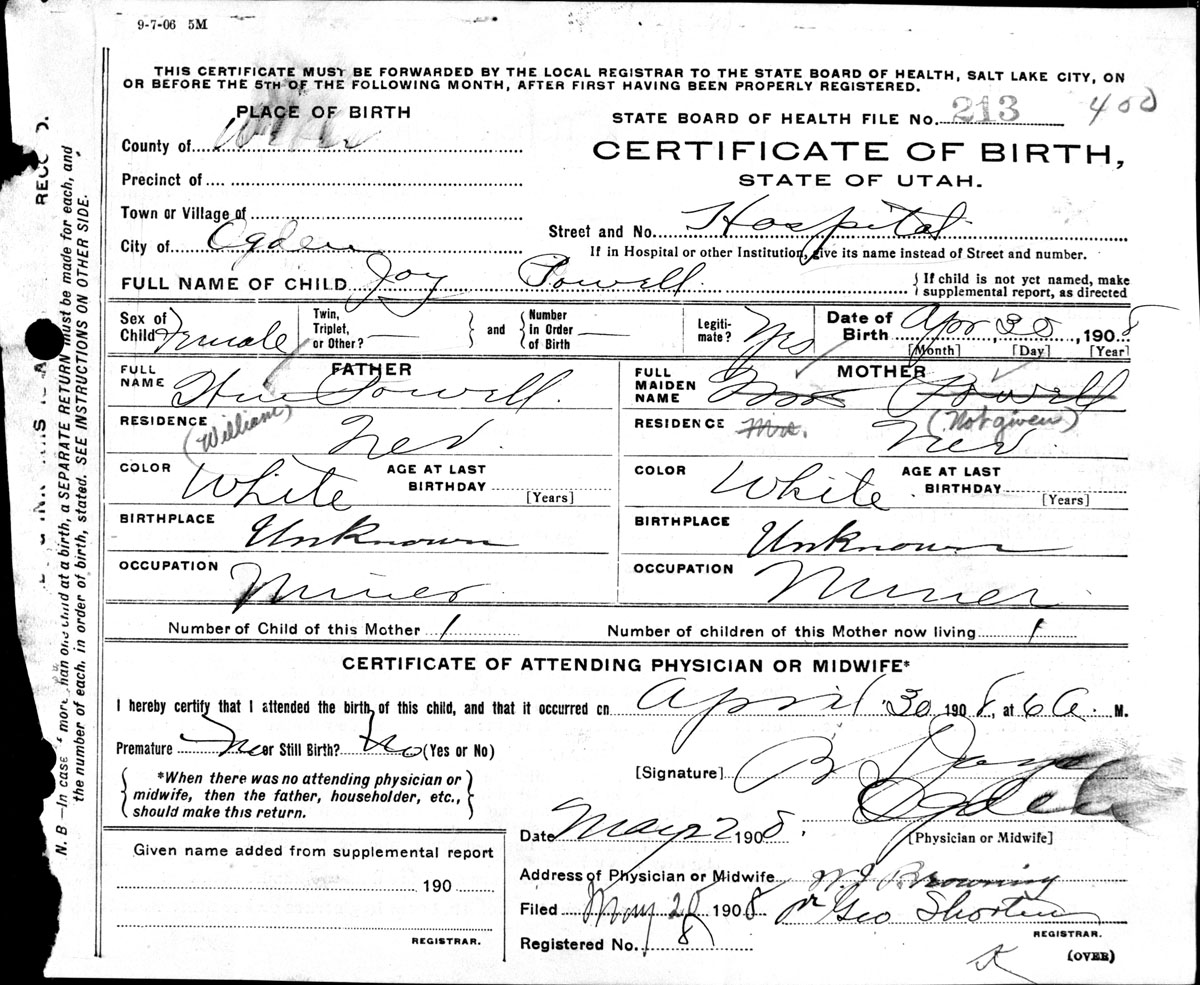 9-7-06 5M
THIS CERTIFICATE MUST BE FORWARDED BY THE LOCAL REGISTRAR TO THE STATE BOARD OF HEALTH, SALT LAKE CITY, ON
OR BEFORE THE 5TH OF THE FOLLOWING MONTH, AFTER FIRST HAVING BEEN PROPERLY REGISTERED.
PLACE OF BIRTH
STATE BOARD OF HEALTH FILE No. 213 400
County of Weber
CERTIFICATE OF BIRTH,
STATE OF UTAH.
Precinct of
Town or Village of
Street and No. Hospital
City of Ogden
If in Hospital or other Institution, give its name instead of Street and number.
FULL NAME OF CHILD Joy Powell { If child is not yet named, make supplemental report, as directed
Sex of Child Female
Twin, Triplet, or Other? — } and { Number in Order of Birth —
Legiti-mate? Yes
Date of Birth Apr 30, 1908
[Month] [Day] [Year]
FATHER
FULL NAME Wm Powell
(William)
RESIDENCE Nev.
COLOR White AGE AT LAST BIRTHDAY [Years]
BIRTHPLACE Unknown
OCCUPATION Miner
MOTHER
FULL MAIDEN NAME Mrs Powell
RESIDENCE Mrs. (Not given)
Nev.
COLOR White. AGE AT LAST BIRTHDAY [Years]
BIRTHPLACE Unknown
OCCUPATION Miner
Number of Child of this Mother 1 Number of children of this Mother now living 1
CERTIFICATE OF ATTENDING PHYSICIAN OR MIDWIFE*
I hereby certify that I attended the birth of this child, and that it occurred on April 30 1908, at 6 a. M.
Premature No or Still Birth? No (Yes or No)
*When there was no attending physician or
midwife, then the father, householder, etc.,
should make this return.
[Signature]
Ogden
Date May 2 1908.
[Physician or Midwife]
Given name added from supplemental report
190
REGISTRAR.
Address of Physician or Midwife W. J. Browning
Filed May 28 1908 pr Geo Shorten
REGISTRAR.
Registered No. 8
(OVER)
N. B —In case of more than one child at a birth, a SEPARATE RETURN must be made for each, and
the number of each, in order of birth, stated. SEE INSTRUCTIONS ON OTHER SIDE.